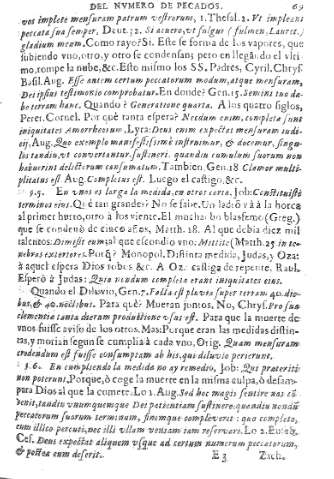 DEL NVMERO DE PECADOS. 69
vos implete mensuram patrum vestrorum, 1. Thesal. 2. Vt impleant
peccata sua semper, Deut. 32. Si acuero, vt fulgur (fulmen, Lauret.)
gladium meum. Como rayo? Si. Este se forma de los vapores, que
subiendo vno, otro, y otro se condensan; pero en llegãdo el vlti
mo, rompe la nube, &c. Este mismo los SS. Padres, Cyril. Chrys.
Basil. Aug. Esse antem certum peccatorum modum, atque mensuram,
Dei ipsius testimonio comprobatur. En donde? Gen. 15. Semini tuo da-
bo terram hanc. Quando? Generatione quarta. A los quatro siglos,
Perer. Cornel. Por què tanta espera? Necdum enim, completa sunt
iniquitates Amorrheorum. Lyra: Deus enim expectat mensuram iudi
cij, Aug. Quo exemplo manifestissimè instruimur, & docemur, singu-
los tandiu, vt convertantur, sustineri. quandiu cumulum suorum non
habuerint delictorum consumatum. Tambien. Gen. 18 Clamor multi-
plicatus est Aug. Completus est. Luego el castigo, &c.
3. 5. En vnos es larga la medida, en otros corta. Job: Constituisti
terminos eius. Qũ è tan grande? No se sabe. Vn ladrõ và à la horca
al primer hurto, otro à los veinte. El muchacho blasfemo (Greg.)
que se condenò de cinco años, Matth. 18. Al que debia diez mil
talentos: Dimisit eum al que escondiò vno: Mittite (Matth. 25 in te-
nebras exteriores. Porq̃? Monopol. Distinta medida, Judas, y Oza:
à aquel espera Dios robos &c. A Oza castiga de repente. Raul.
Esperò à Judas: Quia nondum complete erant iniquitates eius.
Quando el Diluvio, Gen. 7. Facta est pluvia super terram 40. die-
bus, & 40. noctibus. Para què? Mueran juntos, No, Chrys. Pro sua
clementia tanta dierum productione vsus est. Para que la muerte de
vnos fuesse aviso de los otros. Mas: Porque eran las medidas distin-
tas, y morian segun se cumplia à cada vno, Orig. Quam mensuram
credendum est fuisse consumptam ab his, qui diluvio perierunt.
3. 6. En cumpliendo la medida no ay remedio, Job: Qui præteriri
non poterunt. Porque, ò coge la muerte en la misma culpa, ò desam-
para Dios al que la comete. Lo 1. Aug. Sed hoc magis sentire nos cõ-
venit, tandiu vnumquemque Dei patientiam sustinere: quandiu nondũ
peccatorum suorum terminum, finemque compleverit: quo completo,
eum illico percuti, nec illi vllam veniam iam reservare. Lo 2. Euseb.
Ces. Deus expectat aliquem vsque ad certum numerum peccatorum,
& postea eum deserit.
E 3 Zach.